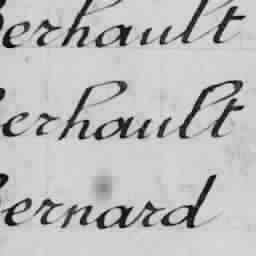 Berhault
Berhault
Bernard